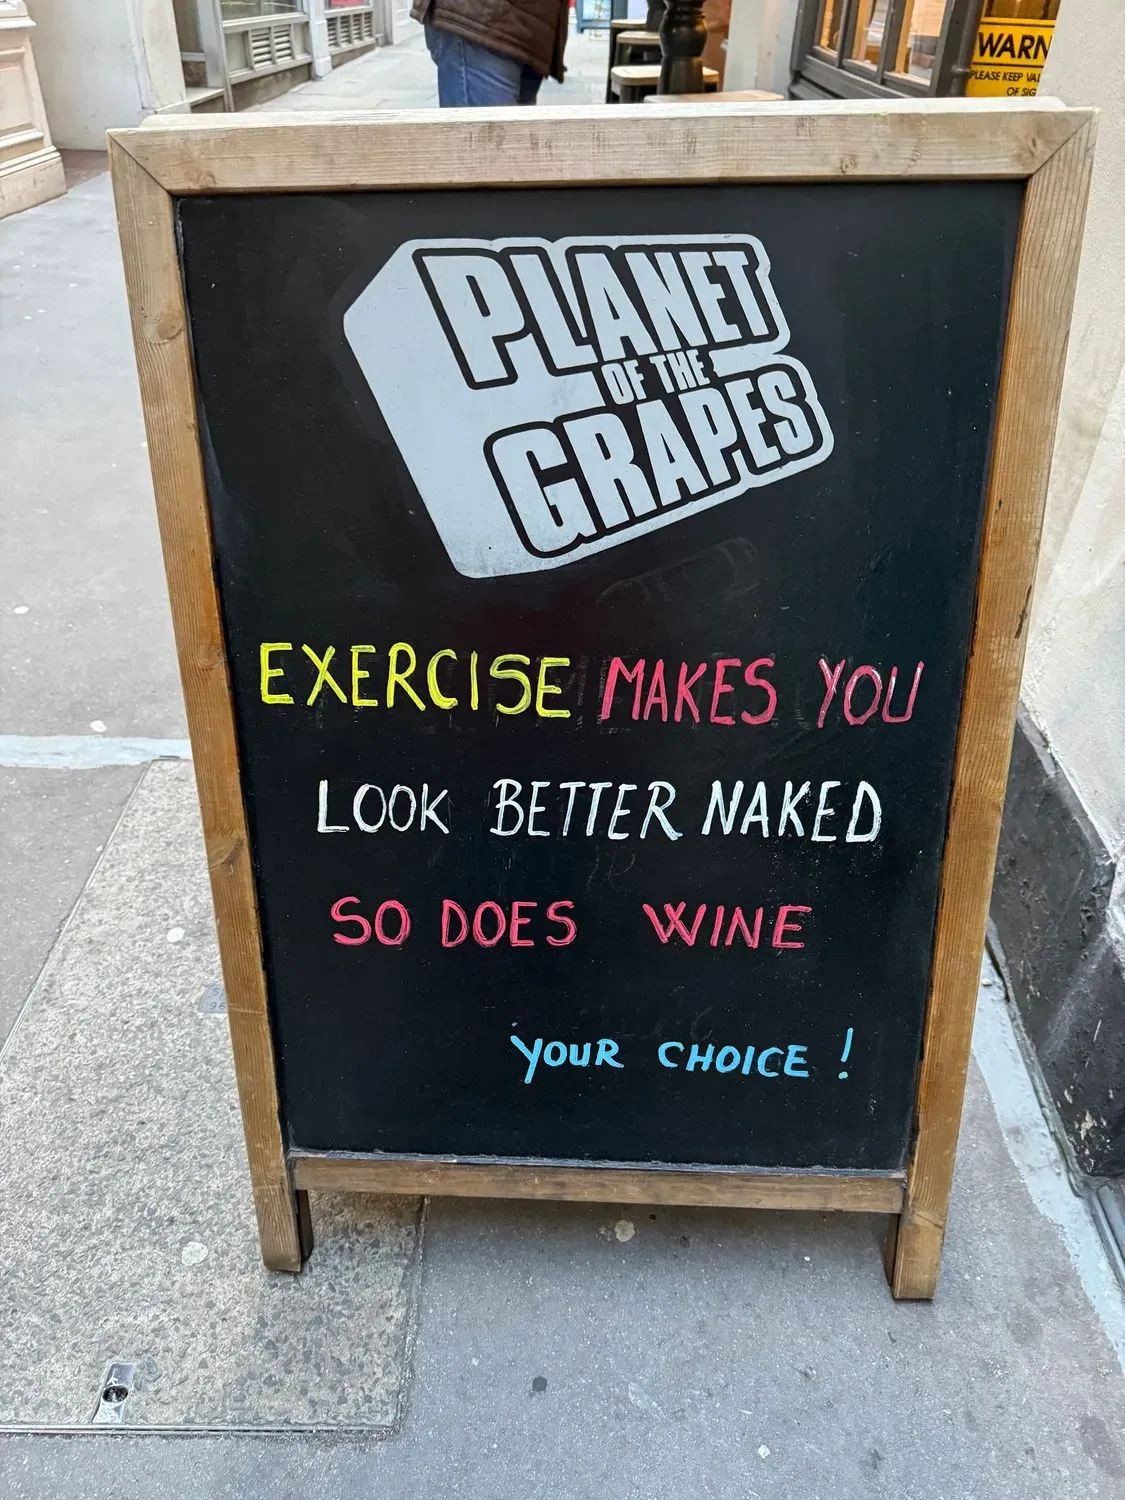 WARN
PLEASE KEEP VAL
OF SIG
PLANET
OF THE
GRAPES
EXERCISE MAKES YOU
LOOK BETTER NAKED
SO DOES WINE
YOUR CHOICE !